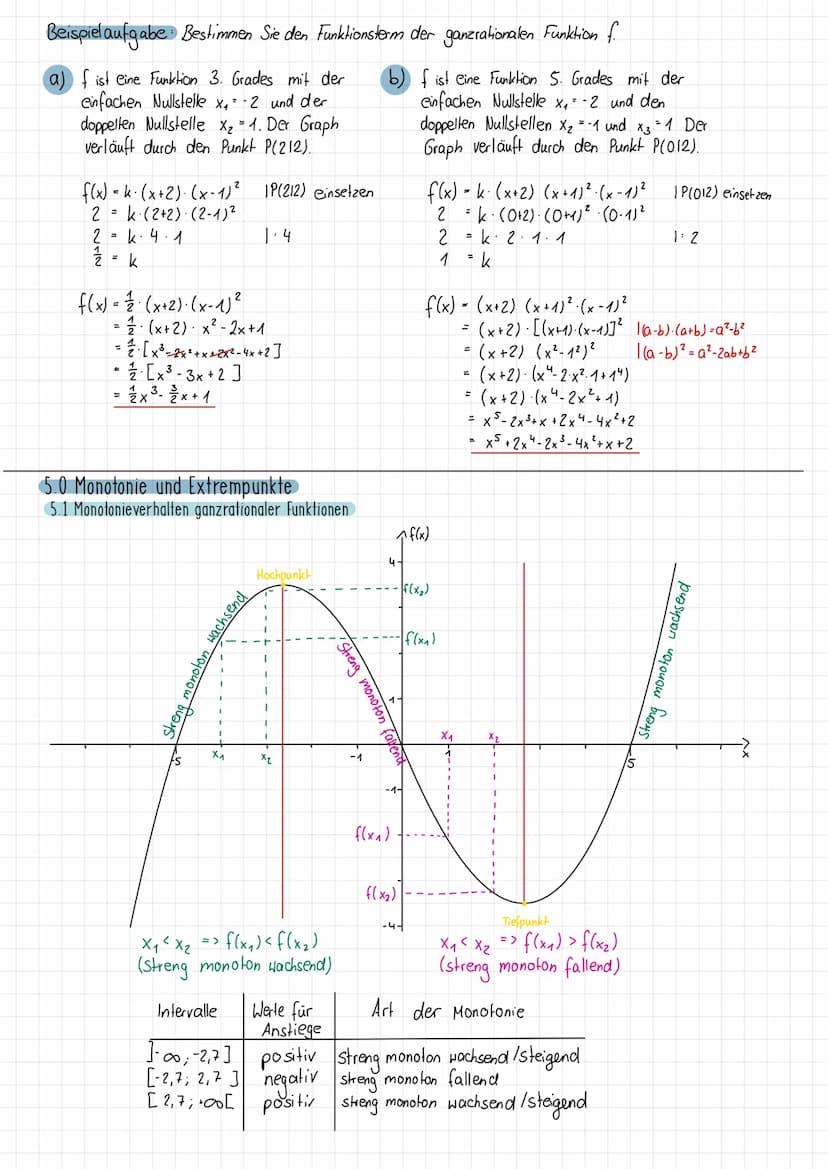 Beispielaufgabe: Bestimmen Sie den Funktionsterm der ganzrationalen Funktion f.
a) f ist eine Funktion 3. Grades mit der
einfachen Nullstelle x₁ = -2 und der
doppelten Nullstelle x₂ = 1. Der Graph
verläuft durch den Punkt P(2|2).
f(x) = k · (x+2) · (x-1)² |P(2|2) einsetzen
2 = k · (2+2) · (2-1)²
2 = k · 4 · 1 | : 4
1/2 = k
f(x) = 1/2 · (x+2) · (x-1)²
= 1/2 · (x+2) · x² - 2x + 1
= 1/2 · [x³ - 2x² + x + 2x² - 4x + 2]
= 1/2 · [x³ - 3x + 2]
= 1/2 x³ - 3/2 x + 1
b) f ist eine Funktion 5. Grades mit der
einfachen Nullstelle x₁ = -2 und den
doppelten Nullstellen x₂ = -1 und x₃ = 1 Der
Graph verläuft durch den Punkt P(0|2).
f(x) = k · (x+2) (x+1)² · (x-1)² |P(0|2) einsetzen
2 = k · (0+2) · (0+1)² · (0-1)²
2 = k · 2 · 1 · 1 | : 2
1 = k
f(x) = (x+2) (x+1)² · (x-1)²
= (x+2) · [(x+1) · (x-1)]² |(a-b) · (a+b) = a²-b²
= (x+2) (x²-1²)² |(a-b)² = a²-2ab+b²
= (x+2) · (x⁴-2·x²·1+1⁴)
= (x+2) · (x⁴-2x²+1)
= x⁵-2x³+x+2x⁴-4x²+2
= x⁵+2x⁴-2x³-4x²+x+2
5.0 Monotonie und Extrempunkte
5.1 Monotonieverhalten ganzrationaler Funktionen
f(x)
4
Hochpunkt
f(x₂)
streng monoton wachsend
f(x₁)
streng monoton fallend
streng monoton wachsend
1
x₁
x₂
-5
x₁
x₂
-1
1
5
x
-1
f(x₁)
f(x₂)
-4
Tiefpunkt
x₁ < x₂ => f(x₁) < f(x₂)
(streng monoton wachsend)
x₁ < x₂ => f(x₁) > f(x₂)
(streng monoton fallend)
Intervalle | Werte für Anstiege | Art der Monotonie
]-∞; -2,7] | positiv | streng monoton wachsend/steigend
[-2,7; 2,7] | negativ | streng monoton fallend
[2,7; +∞[ | positiv | streng monoton wachsend/steigend